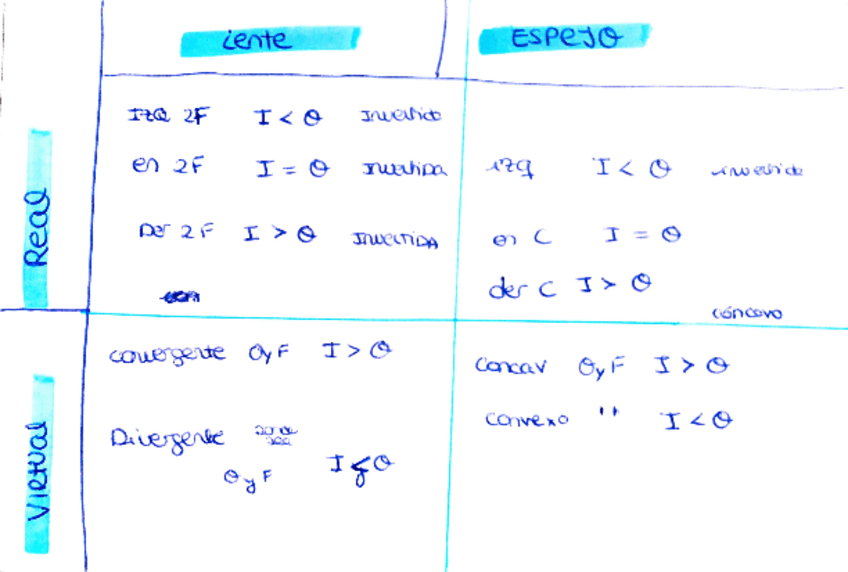 Lente ESPEJO
Real
IZQ 2F I < O Invertido
en 2F I = O Invertida
Der 2F I > O INVERTIDA
izq I < O invertido
en C I = O
der C I > O
cóncavo
Virtual
convergente O y F I > O
Divergente
O y F I < O
Concav O y F I > O
convexo " I < O